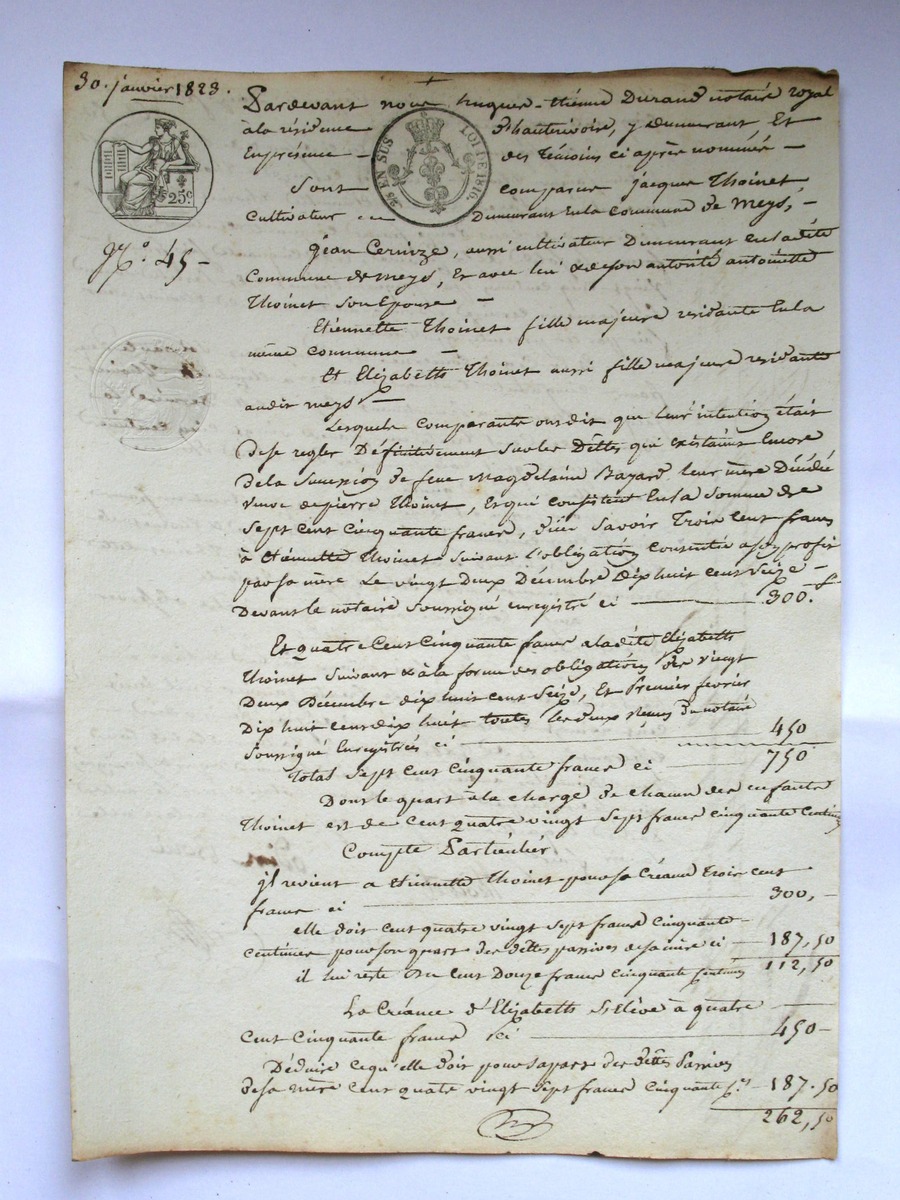 30. janvier 1823.
Pardevant nous hugues-etienne Durand notaire royal
à la résidence d'hauterivoire, y demeurant Et
En présence - des témoins ci après nommés -
25 EN SUS LOI DE 1816.
25c.
Sont comparus jacques Thoinet
Cultivateur demeurant En la Commune de Meys, -
N.o 45 -
jean Cerisze, aussi cultivateur Demeurant en ladite
Commune de meys, Et avec lui & de son autorité antoinette
Thoinet son Epouse -
Etiennette Thoinet fille majeure residante En la
même commune -
Et Elizabeth Thoinet aussi fille majeure residante
audit meys -
Lesquels comparants ont dit que leur intention était
de se regler Définitivement sur les Dettes qui existaient Encore
de la Succession de feue Magdelaine Bayard leur mère Décédée
veuve de pierre Thoinet, Et qui consistent En la somme de
Sept cent cinquante francs, dûe Savoir Trois Cent francs
à Etiennette Thoinet suivant l'obligation consentie à son profit
par sa mère Le vingt Deux Décembre Dix huit cent seize -
Devant le notaire soussigné enregistré ci 300.f
Et quatre Cent Cinquante francs à ladite Elizabeth
Thoinet suivant & à la forme des obligations des vingt
Deux Décembre dix huit cent seize, Et Premier fevrier
Dix huit cent dix huit toutes les deux reçues du notaire
soussigné Enregistrées ci 450
Total sept cent cinquante francs ci 750
Dont le quart à la charge de chacun des enfants
Thoinet est de Cent quatre vingt sept francs cinquante Centimes
Compte Particulier
il revient a Etiennette Thoinet pour sa Créance trois cent
francs ci 300, -
elle doit cent quatre vingt sept francs cinquante
centimes pour son quart des dettes passives de sa mère ci 187,50
il lui reste Du Cent Douze francs cinquante Centimes 112,50
La Créance d'Elizabeth S'élève à quatre
Cent Cinquante francs ici 450 -
Déduire ce qu'elle doit pour sa part des dettes Passives
de sa mère Cent quatre vingt sept francs cinquante c.es 187.50
262,50